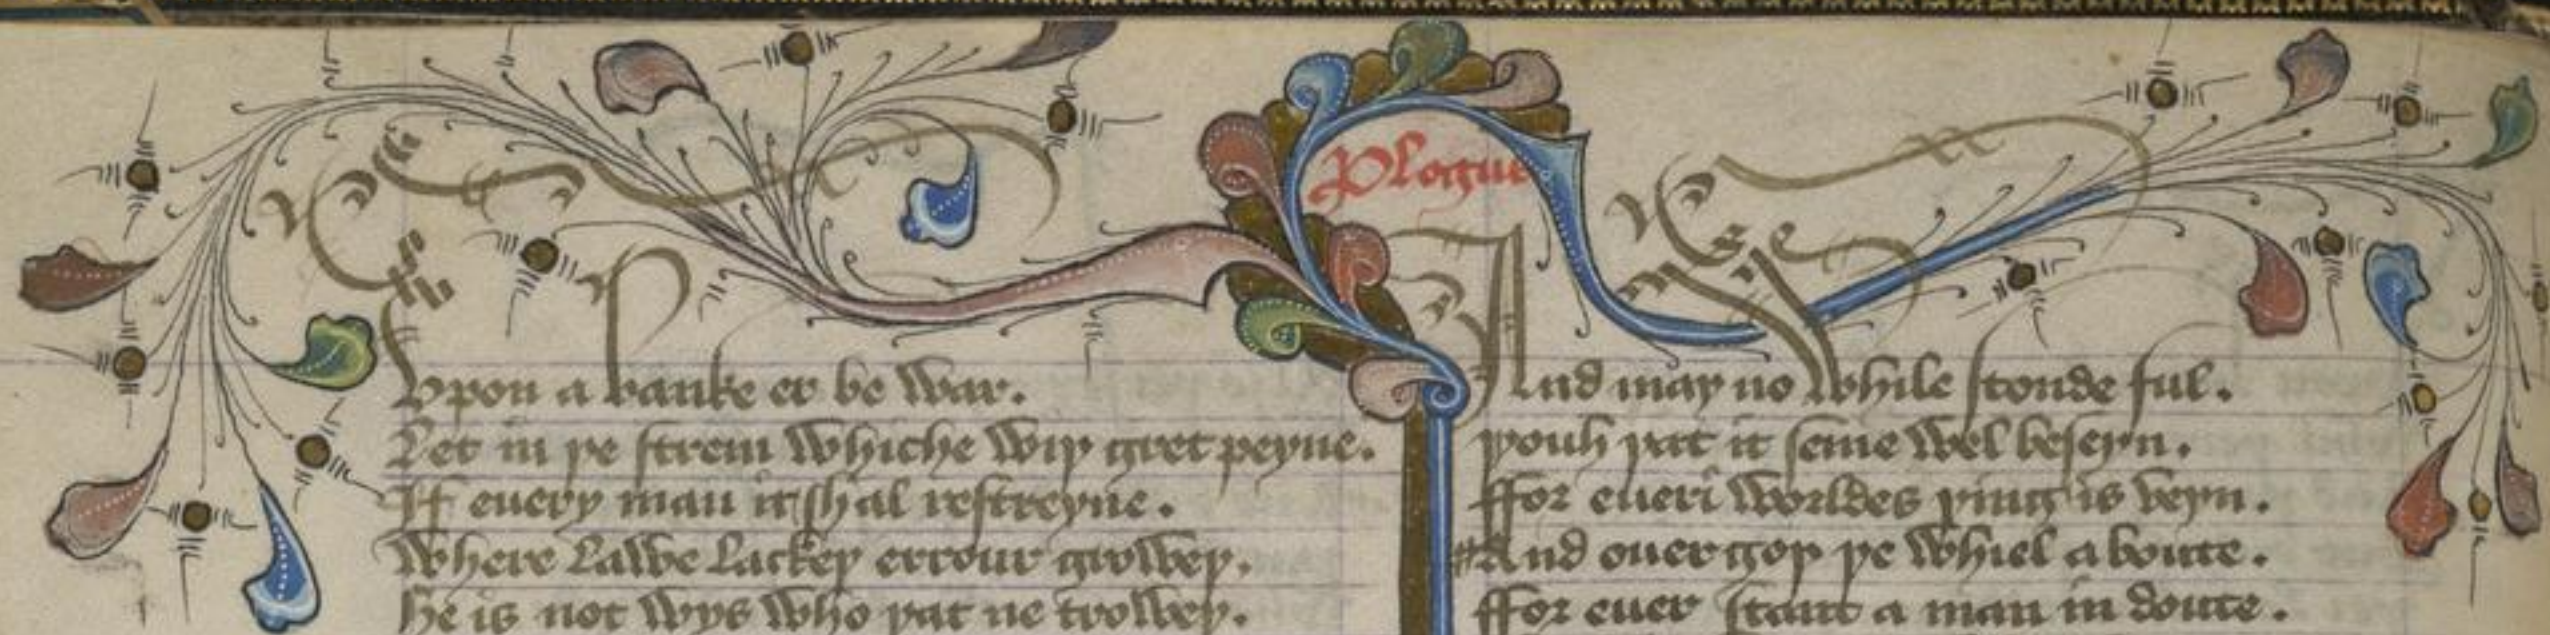 Plogue
Vpon a banke er be war.
Let in þe strem whiche wiþ gret peyne.
If euery man it shal restreyne.
Where Lawe Lackeþ errour groweþ.
He is not wys who þat ne troweþ.
And may no while stonde ful.
þouh þat it seme wel beseyn.
ffor eueri worldes þing is veyn.
And ouer goþ þe whiel a boute.
ffor euer stant a man in doute.